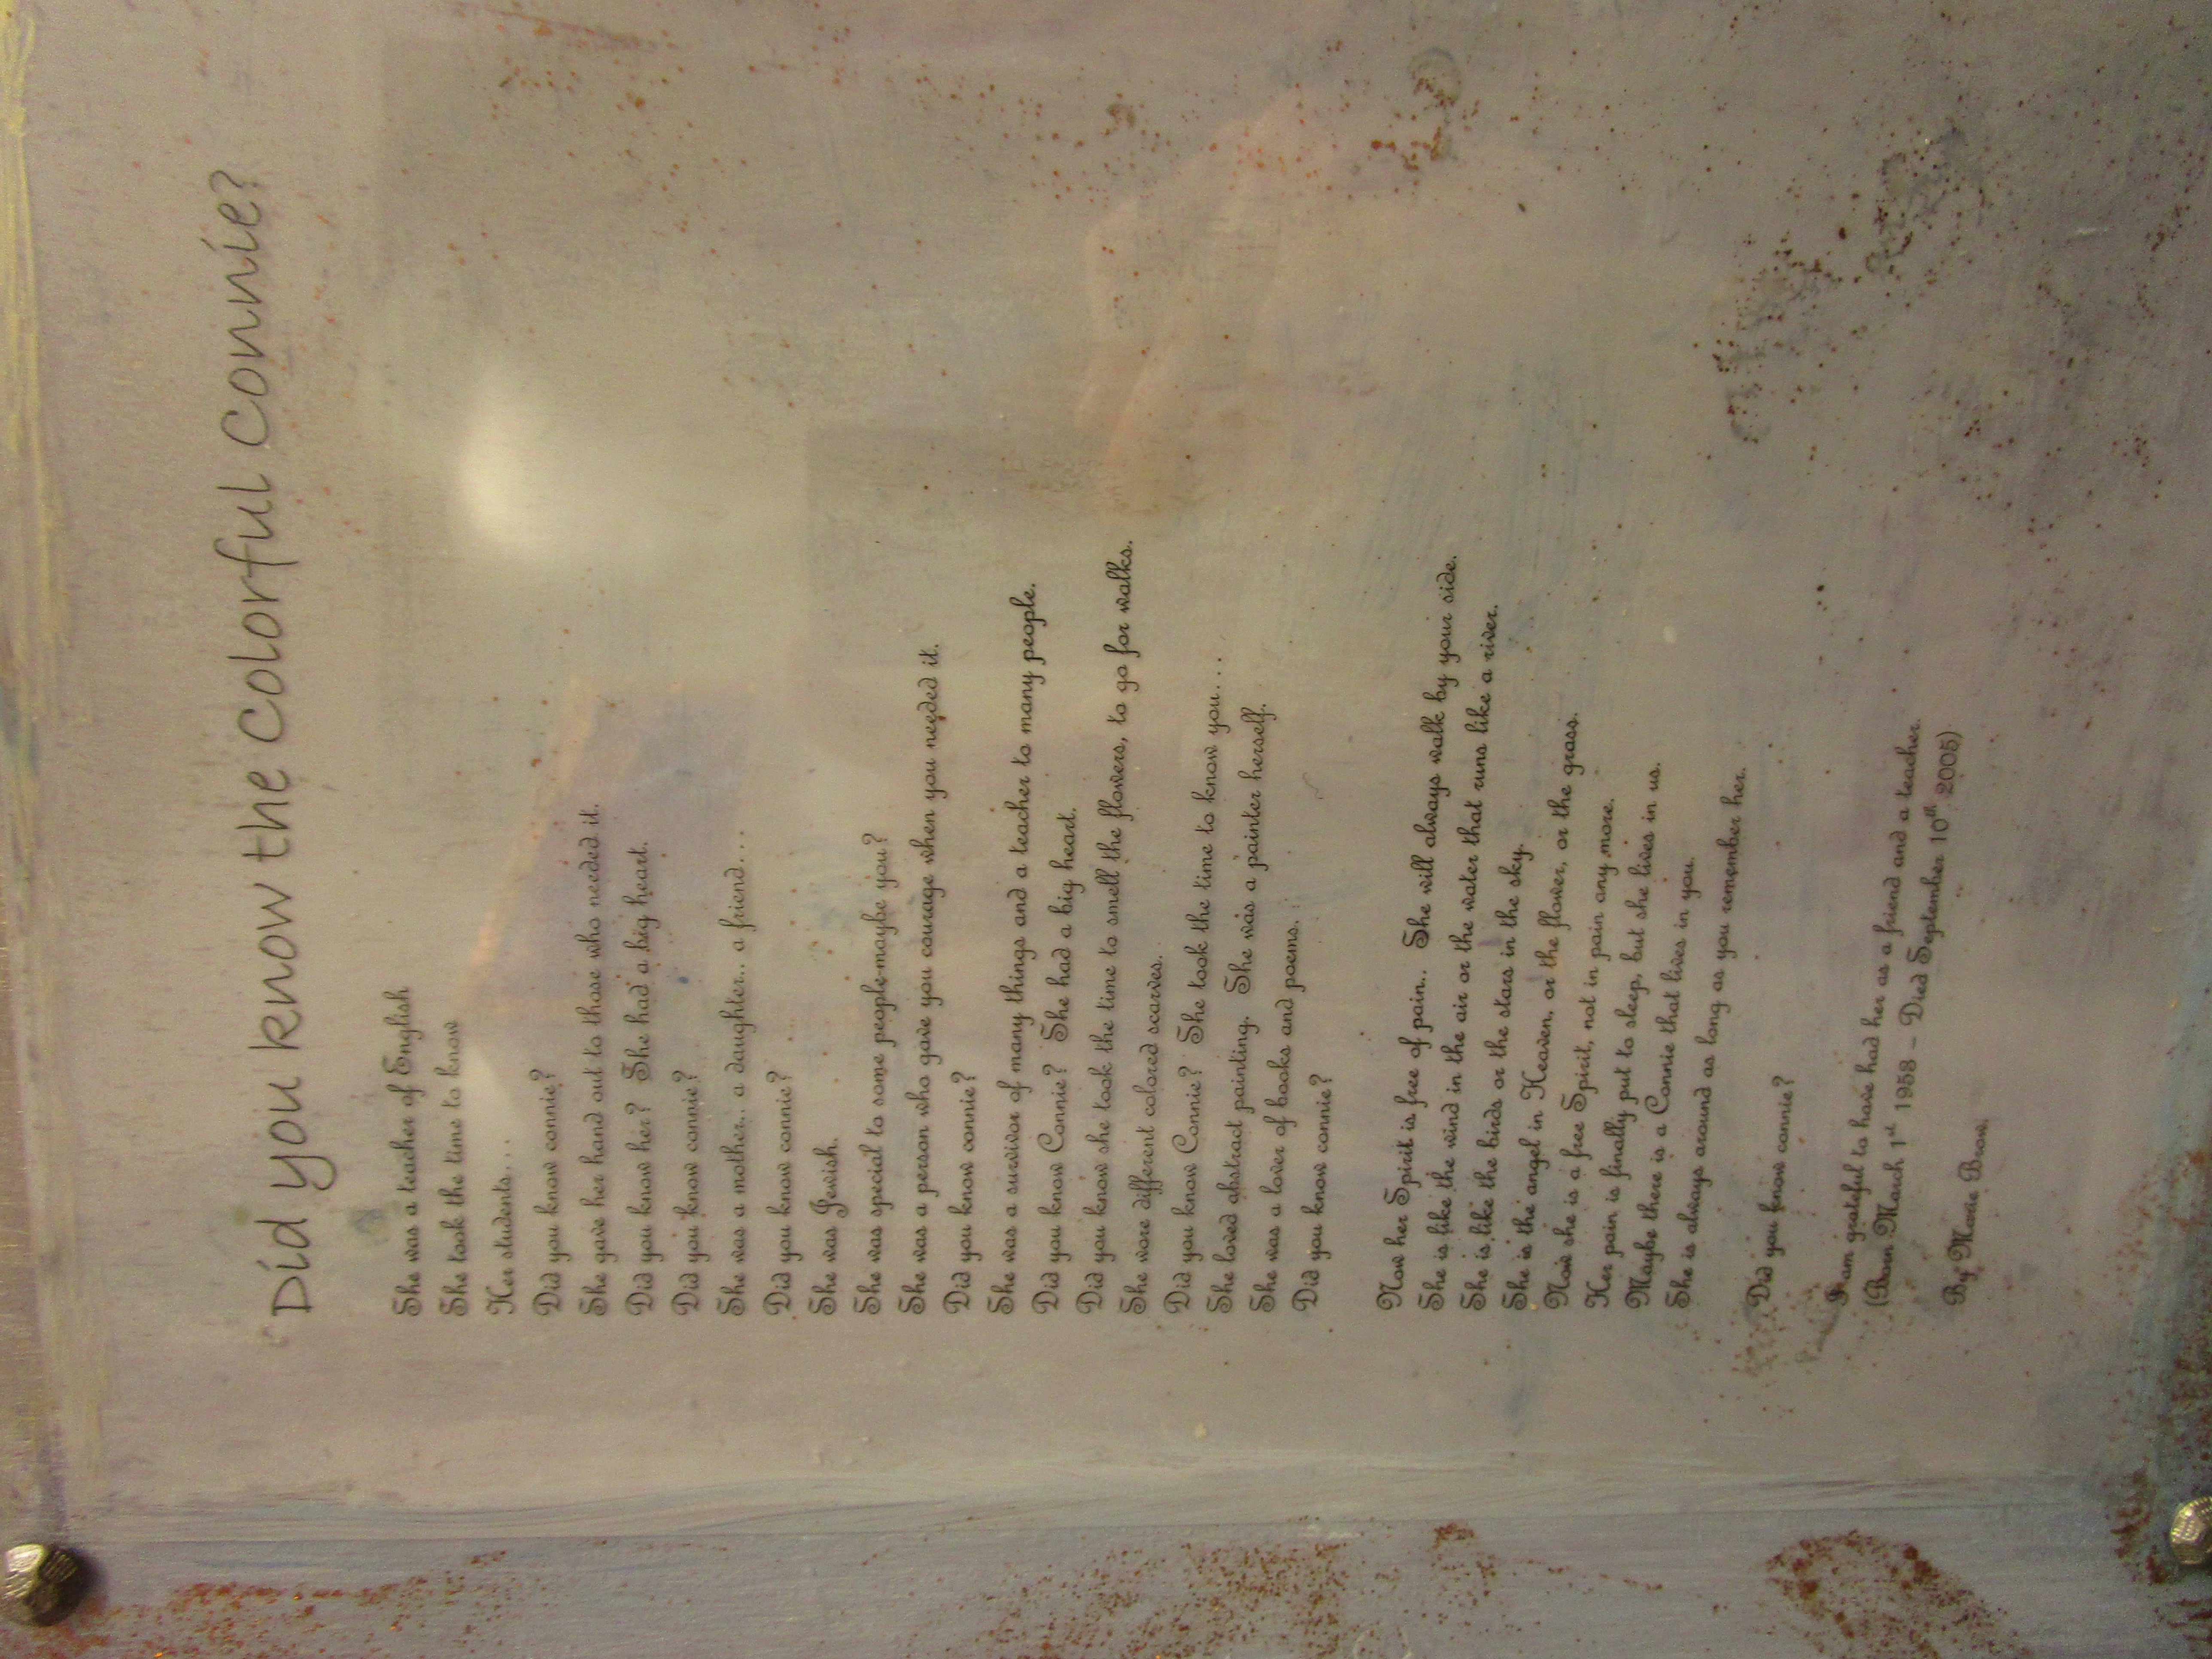 Did you know the Colorful Connie?
She was a teacher of English
She took the time to know
Her students....
Did you know connie?
She gave her hand out to those who needed it.
Did you know her? She had a big heart.
Did you know connie?
She was a mother.. a daughter.. a friend....
Did you know connie?
She was Jewish.
She was special to some people-maybe you?
She was a person who gave you courage when you needed it.
Did you know connie?
She was a survivor of many things and a teacher to many people.
Did you know Connie? She had a big heart.
Did you know she took the time to smell the flowers, to go for walks.
She wore different colored scarves.
Did you know Connie? She took the time to know you....
She loved abstract painting. She was a painter herself.
She was a lover of books and poems.
Did you know connie?
Now her Spirit is free of pain.. She will always walk by your side.
She is like the wind in the air or the water that runs like a river.
She is like the birds or the stars in the sky.
She is the angel in Heaven, or the flower, or the grass.
Now she is a free Spirit, not in pain any more.
Her pain is finally put to sleep, but she lives in us.
Maybe there is a Connie that lives in you.
She is always around as long as you remember her.
Did you know connie?
I am grateful to have had her as a friend and a teacher.
(Born March 1st 1958 – Died September 10th 2005)
By Marie Brow.